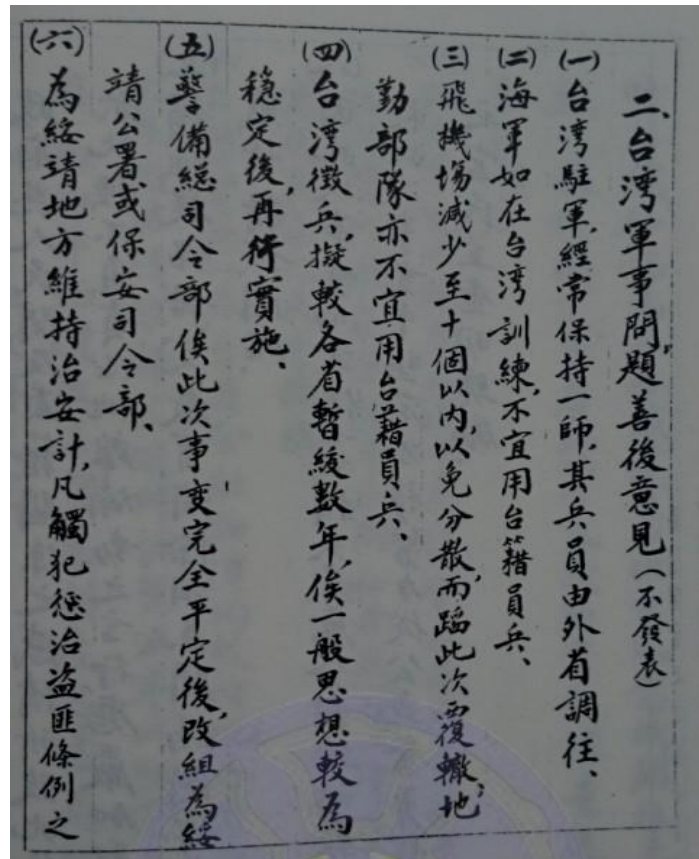 二、台湾軍事問題善後意見(不發表)
(一)台湾駐軍,經常保持一師,其兵員由外省調往、
(二)海軍如在台湾訓練,不宜用台籍員兵、
(三)飛機場減少至十個以內,以免分散而蹈此次覆轍,地
勤部隊亦不宜用台籍員兵、
(四)台湾徵兵,擬較各省暫緩數年,俟一般思想較為
穩定後,再行實施、
(五)警備總司令部俟此次事变完全平定後,改組為綏
靖公署或保安司令部、
(六)為綏靖地方維持治安計,凡觸犯懲治盗匪條例之